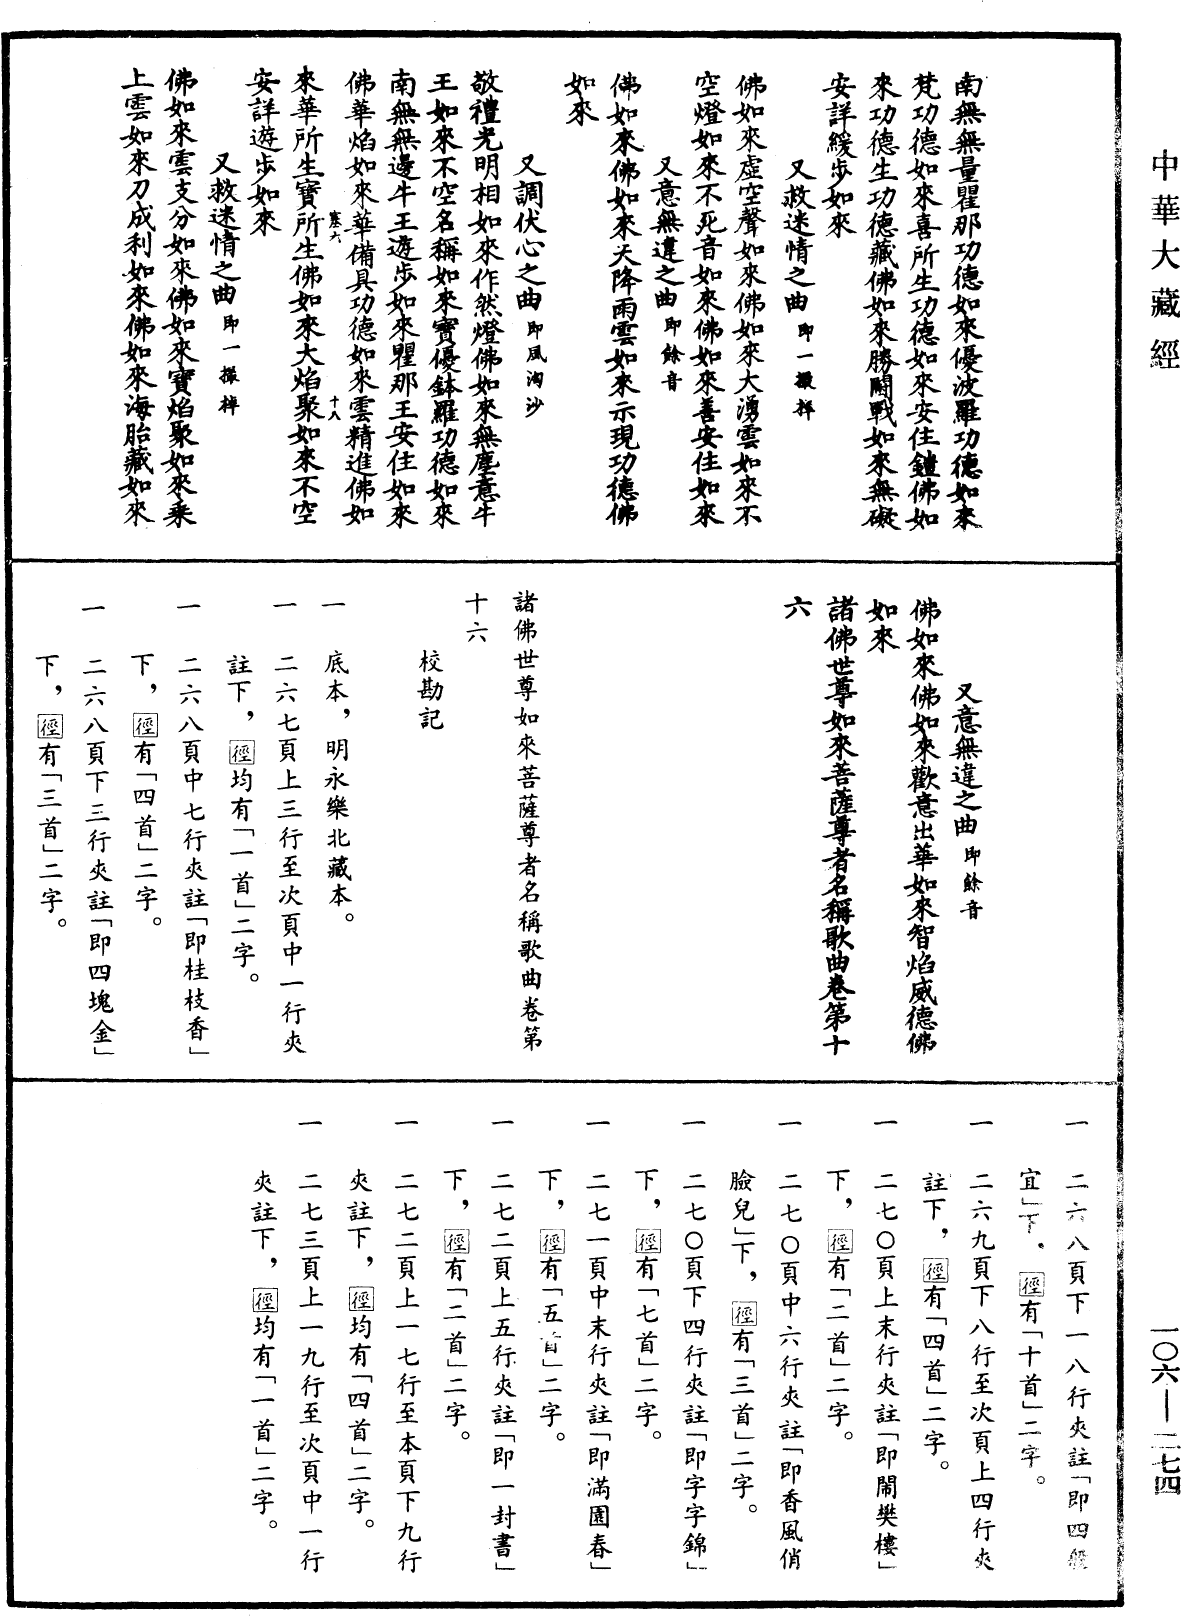 中華大藏經
南無無量瞿那功德如來優波羅功德如來
梵功德如來喜所生功德如來安住鎧佛如
來功德生功德藏佛如來勝鬪戰如來無礙
安詳緩步如來
又救迷情之曲 即一撮棹
佛如來虛空聲如來佛如來大湧雲如來不
空燈如來不死音如來佛如來善安住如來
又意無違之曲 即餘音
佛如來佛如來天降雨雲如來示現功德佛
如來
又調伏心之曲 即風淘沙
敬禮光明相如來作然燈佛如來無塵意牛
王如來不空名稱如來寶優鉢羅功德如來
南無無邊牛王遊步如來瞿那王安住如來
佛華焰如來華備具功德如來雲精進佛如
塞六 十八
來華所生寶所生佛如來大焰聚如來不空
安詳遊步如來
又救迷情之曲 即一撮棹
佛如來雲支分如來佛如來寶焰聚如來乘
上雲如來刀成利如來佛如來海胎藏如來
又意無違之曲 即餘音
佛如來佛如來歡意出華如來智焰威德佛
如來
諸佛世尊如來菩薩尊者名稱歌曲卷第十
六
諸佛世尊如來菩薩尊者名稱歌曲卷第
十六
校勘記
一 底本，明永樂北藏本。
一 二六七頁上三行至次頁中一行夾
註下，徑均有「一首」二字。
一 二六八頁中七行夾註「即桂枝香」
下，徑有「四首」二字。
一 二六八頁下三行夾註「即四塊金」
下，徑有「三首」二字。
一 二六八頁下一八行夾註「即四般
宜」下，徑有「十首」二字。
一 二六九頁下八行至次頁上四行夾
註下，徑有「四首」二字。
一 二七〇頁上末行夾註「即鬧樊樓」
下，徑有「二首」二字。
一 二七〇頁中六行夾註「即香風俏
臉兒」下，徑有「三首」二字。
一 二七〇頁下四行夾註「即字字錦」
下，徑有「七首」二字。
一 二七一頁中末行夾註「即滿園春」
下，徑有「五首」二字。
一 二七二頁上五行夾註「即一封書」
下，徑有「二首」二字。
一 二七二頁上一七行至本頁下九行
夾註下，徑均有「四首」二字。
一 二七三頁上一九行至次頁中一行
夾註下，徑均有「一首」二字。
一〇六—二七四